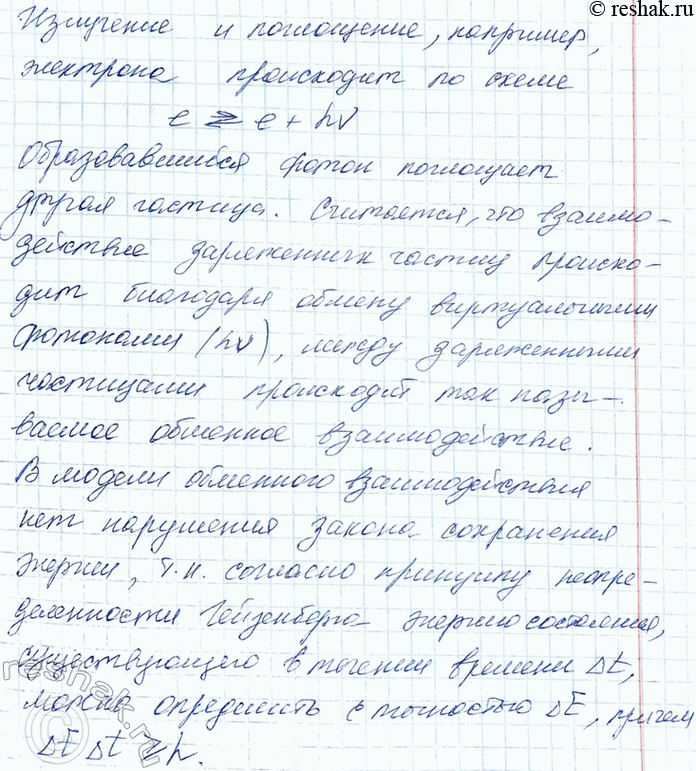 © reshak.ru
Излучение и поглощение, например,
электрона происходит по схеме
e ⇄ e + hν
Образовавшийся фотон поглощает
другая частица. Считается, что взаимо-
действие заряженных частиц происхо-
дит благодаря обмену виртуальными
фотонами (hν), между заряженными
частицами происходит так назы-
ваемое обменное взаимодействие.
В модели обменного взаимодействия
нет нарушения закона сохранения
энергии, т.к. согласно принципу неопре-
деленности Гейзенберга энергию состояния,
существующего в течении времени Δt,
можно определить с точностью ΔE, причем
ΔE Δt ≥ h.
reshak.ru
©